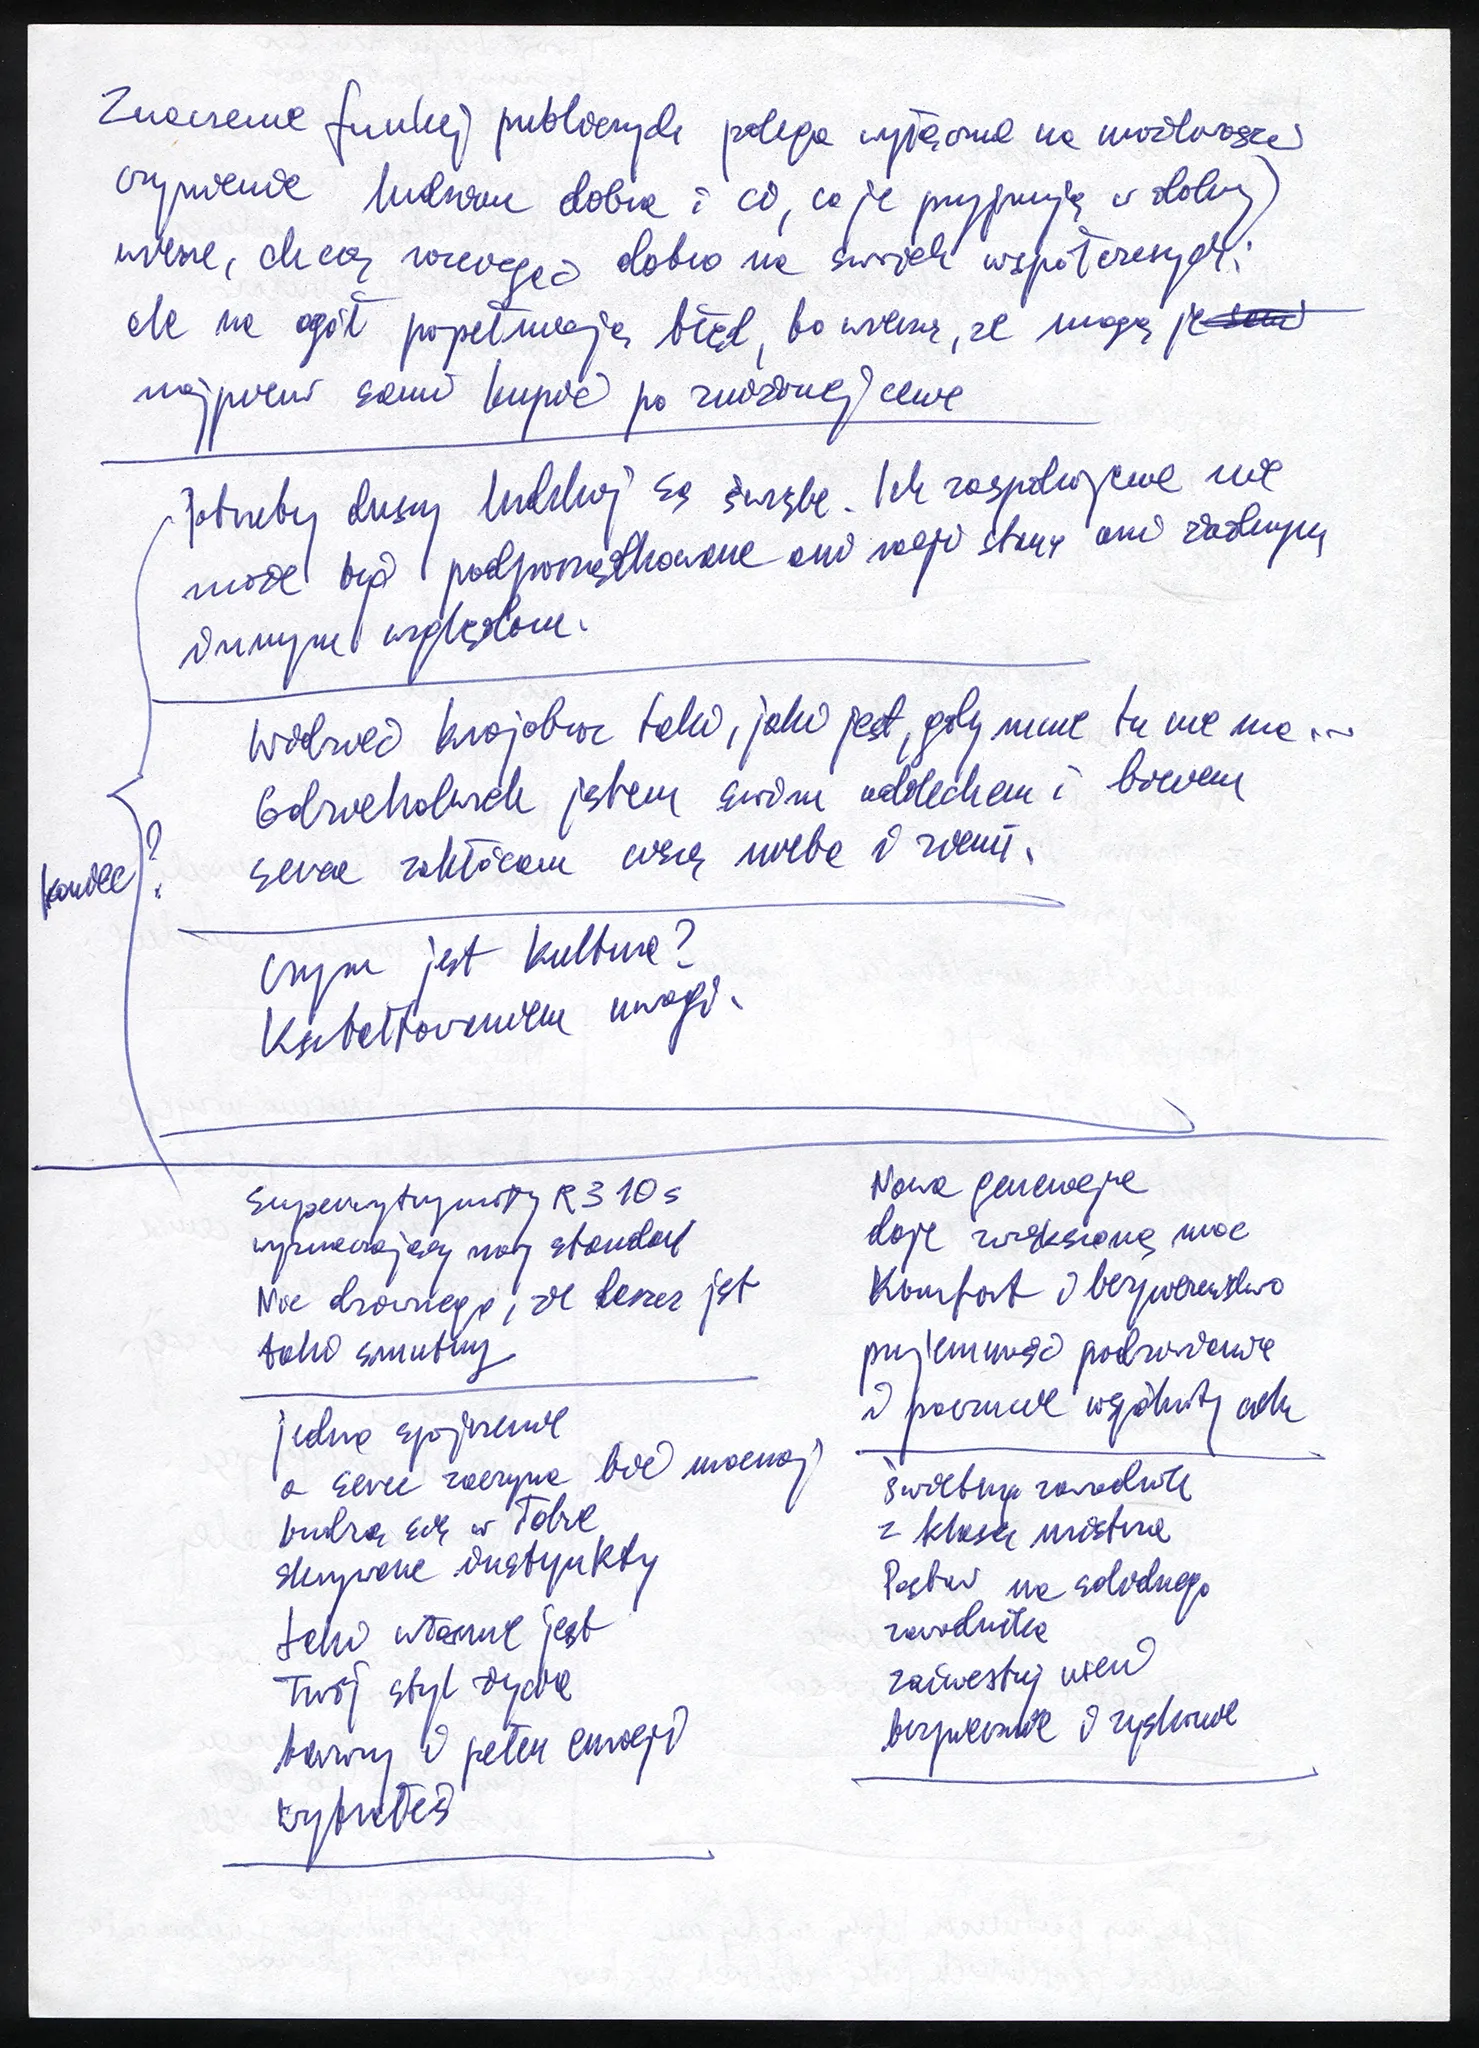 Znaczenie funkcji publicznych polega wyłącznie na możliwości
czynienia ludziom dobra i ci, co je przyjmują w dobrej
wierze, chcą rozciągać dobro na swoich współczesnych;
ale na ogół popełniają błąd, bo wierzą, że mogą je
najpierw sami kupić po zniżonej cenie
Potrzeby duszy ludzkiej są święte. Ich zaspokojenie nie
może być podporządkowane ani racji stanu ani żadnym
innym względom.
Widzieć krajobraz taki, jaki jest, gdy mnie tu nie ma...
Gdziekolwiek jestem swoim oddechem i biciem
serca zakłócam ciszę nieba i ziemi.
koniec?
Czym jest kultura?
Kształtowaniem uwagi.
Superwytrzymały R310s
wyznaczający nowy standard
Nic dziwnego, że deszcz jest
taki smutny
jedno spojrzenie
a serce zaczyna bić mocniej
budzą się w Tobie
skrywane instynkty
taki właśnie jest
Twój styl życia
barwny i pełen emocji
wybrałeś
Nowa generacja
daje zwiększoną moc
Komfort i bezpieczeństwo
przyjemność podróżowania
i poczucie wspólnoty celu
Świetny zawodnik
z klasą mistrza
Postaw na solidnego
zawodnika
zainwestuj
bezpiecznie i zyskownie